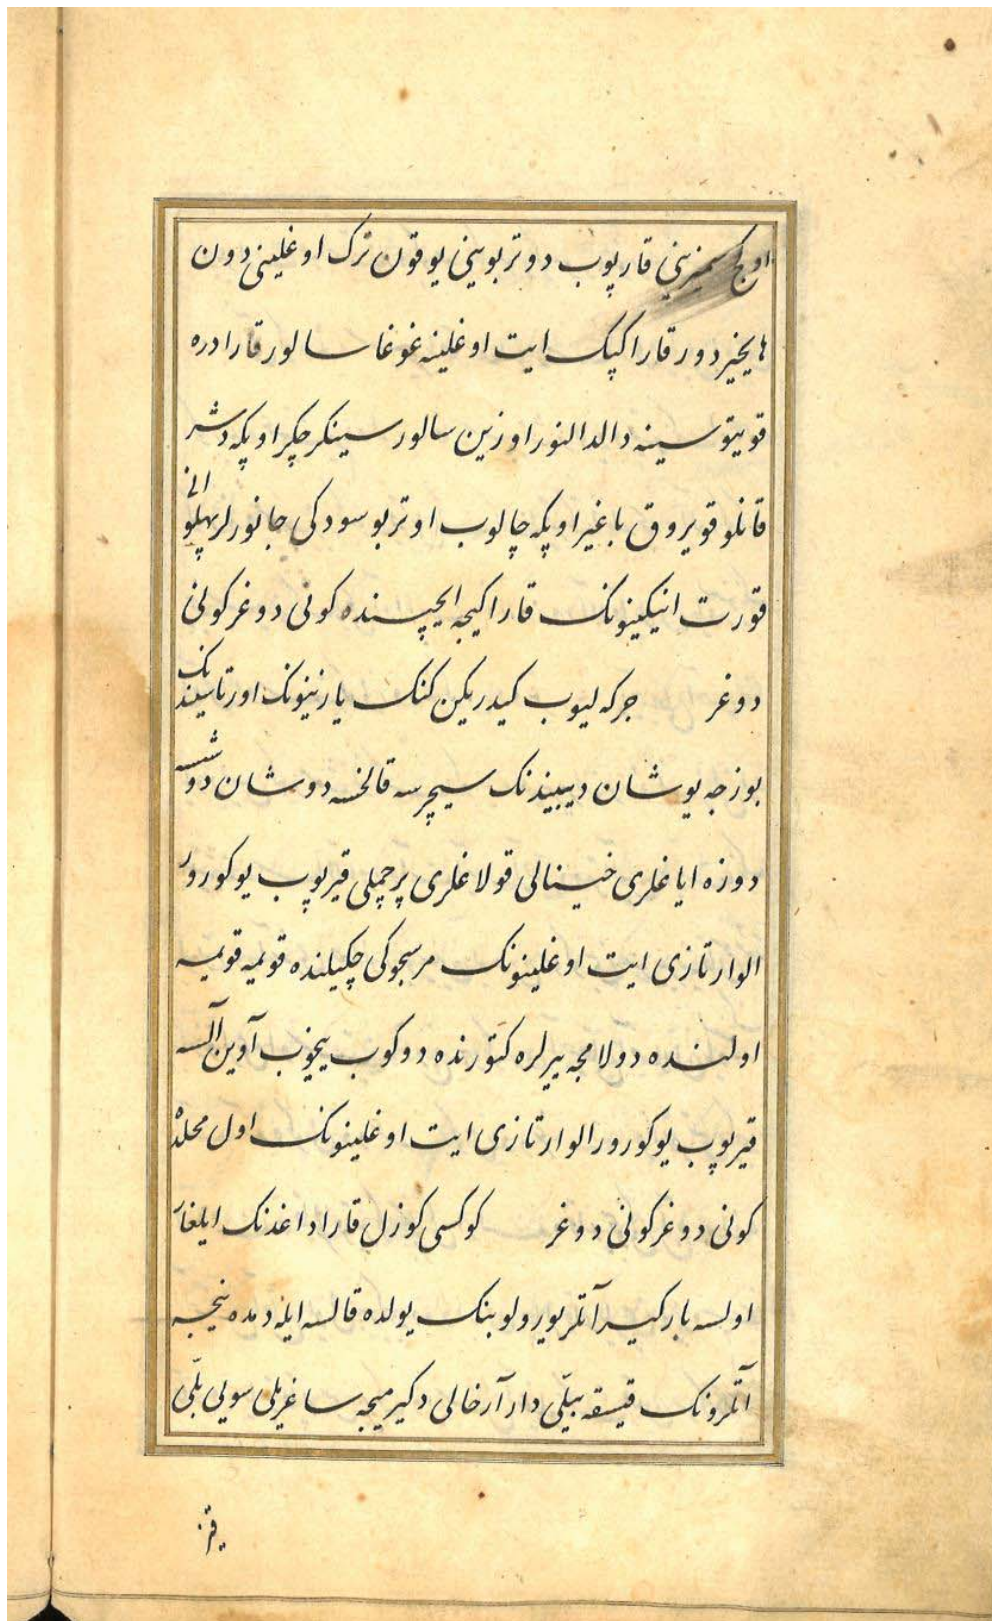 اوج سمیزینی قارپوب دوتر بوینی یوقون ترک اوغلینی دون
هایخیر دور قارا کپک ایت اوغلینه غوغا سالور قارا دره
قویتو سینه دالدالنور اوزین سالور سینکر چکر اوپکه دشر
قانلو قویروق باغیر اوپکه چالوب اوتر بو سودکی جانورلر پهلوانی
قورت انیکینونک قارا کیجه ایچیسنده کونی دوغر کونی
دوغر جرکه لیوب کیدریکن کنک یازینونک اورتاسیندنک
بوزجه یوشان دیبیندنک سیچرسه قالخسه دوشان دوشسه
دوزه ایاغلری خینالی قولاغلری پرچملی قیرپوب یوکورور
الوار تازی ایت اوغلینونک مرسجوکی چکیلنده قویمه قویمه
اولنده دولامجه ییرلره کتورنده دوکوب ییخوب آوین آلسه
قیرپوب یوکورور الوار تازی ایت اوغلینونک اول محلده
کونی دوغر کونی دوغر کوکسی کوزل قارا داغدنک ایلغار
اولسه بارکیر آتلر یورولوبنک یولده قالسه ایله دمده نیجه
آتلرونک قیسقه بیلّی دار آرخالی دکیرمیجه ساغریلی سویی بلّی
قز